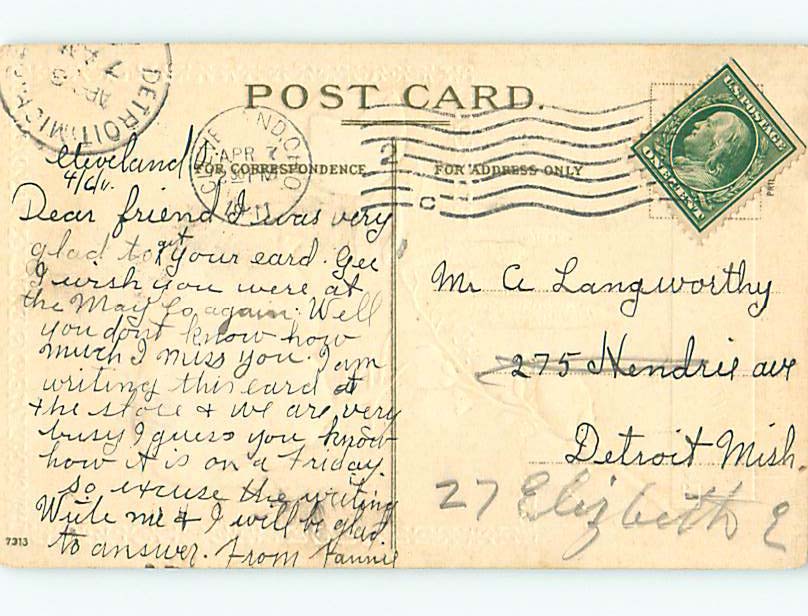 POST CARD.
FOR CORRESPONDENCE
FOR ADDRESS ONLY
DETROIT, MICH.
APR
7
CLEVELAND, OHIO
APR 7
PM
1911
2
C
U.S. POSTAGE
ONE CENT
Cleveland O
4/6/11.
Dear friend I was very
glad to get your card. Gee
I wish you were at
the May Co again. Well
you dont know how
much I miss you. I am
writing this card at
the store & we are very
busy I guess you know
how it is on a Friday.
so excuse the writing
Write me & I will be glad
to answer. From Fannie
Mr A Langworthy
275 Hendrie ave
Detroit Mish.
27 Elizbeth E
7313